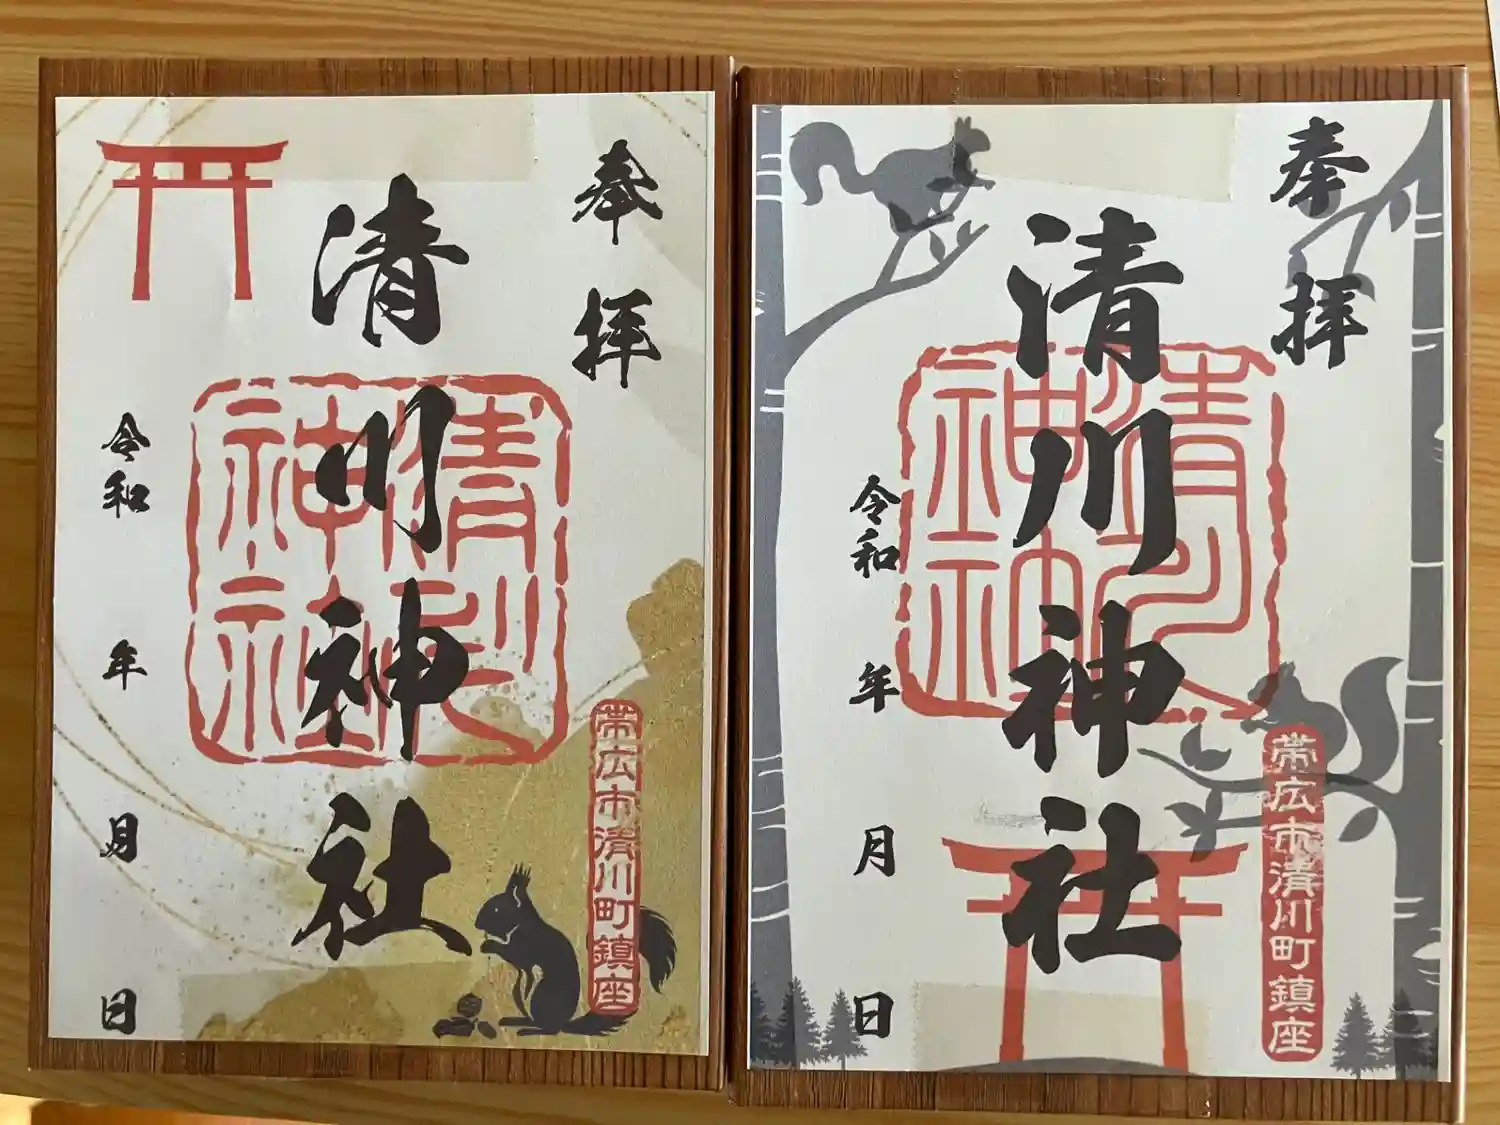 奉拝
清川神社
清川神社
帯広市清川町鎮座
令和 年 月 日
奉拝
清川神社
清川神社
帯広市清川町鎮座
令和 年 月 日